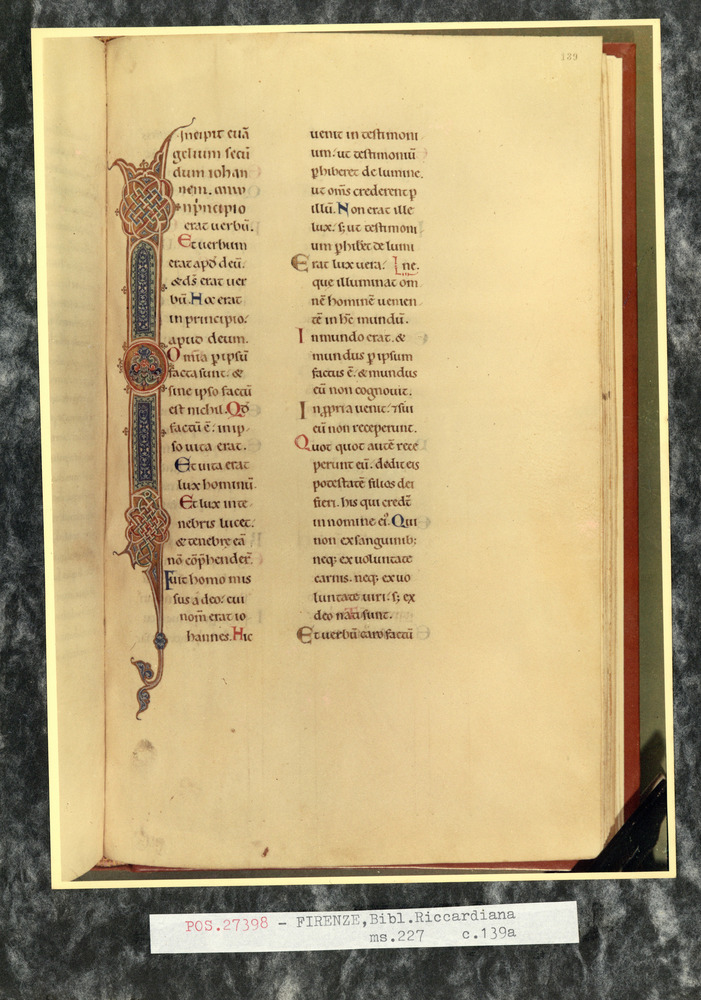 139
Incipit euā
gelium secū
dum iohan
nem.
In p̄ncipio
erat uerbū.
Et uerbum
erat apđ deū.
& d̄s erat uer
bū. Hoc erat
in principio.
apud deum.
Omīa p ipsū
facta sunt. &
sine ipso factū
est nichil. Qđ
factū ē. in ip
so uita erat.
Et uita erat
lux hominū.
Et lux in te
nebris lucet.
& tenebrę eā
nō cōp̄hendert̄.
Fuit homo mis
sus a deo. cui
nom̄ erat io
hannes. Hic
uenit in testimoni
um. ut testimoniū
phiberet de lumine.
ut om̄s crederent p
illū. Non erat ille
lux. s; ut testimoni
um phibēt de lumi
ne.
Erat lux uera.
que illuminat om
nē hominē uenien
tē in hc̄ mundū.
In mundo erat. &
mundus p ipsum
factus ē. & mundus
eū non cognouit.
In ppria uenit. 7 sui
eū non receperunt.
Quot quot autē rece
perunt eū. dedit eis
potestatē filios dei
fieri. his qui credt̄
in nomine ei᾽. Qui
non ex sanguinib;
neq; ex uoluntate
carnis. neq; ex uo
luntate uiri. s; ex
deo nati sunt.
Et uerbū caro factū
POS.27398 - FIRENZE,Bibl.Riccardiana
ms.227 c.139a